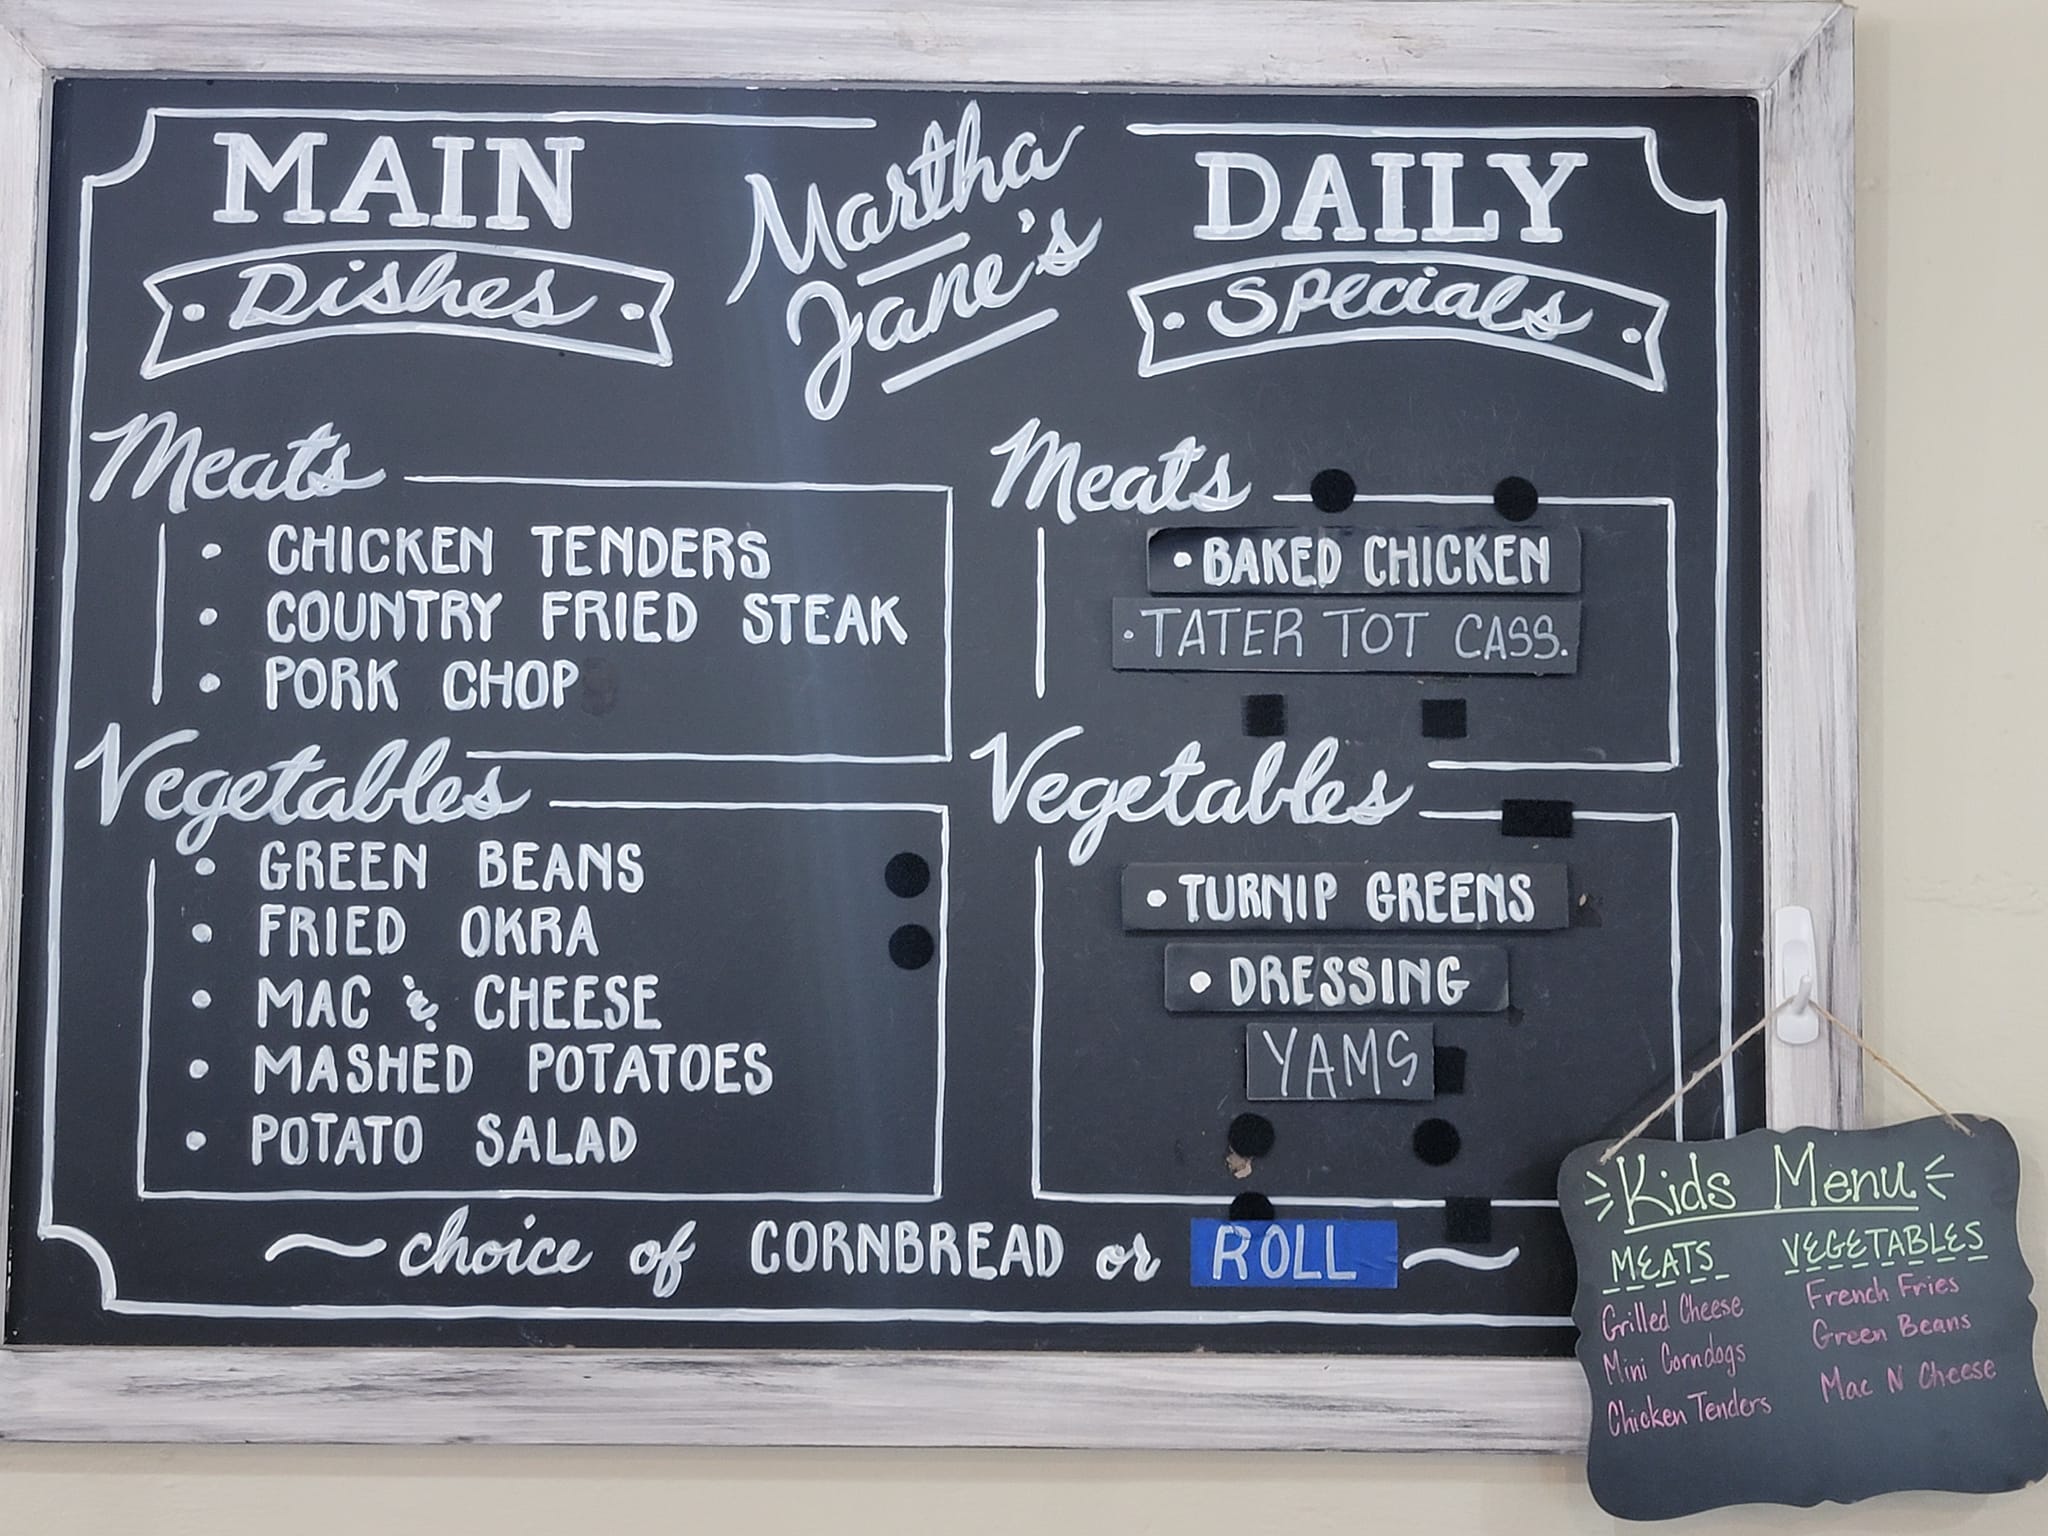 Martha
Jane's
MAIN
Dishes
Meats
• CHICKEN TENDERS
• COUNTRY FRIED STEAK
• PORK CHOP
Vegetables
• GREEN BEANS
• FRIED OKRA
• MAC & CHEESE
• MASHED POTATOES
• POTATO SALAD
DAILY
Specials
Meats
• BAKED CHICKEN
• TATER TOT CASS.
Vegetables
• TURNIP GREENS
• DRESSING
YAMS
~ choice of CORNBREAD or ROLL ~
Kids Menu
MEATS
Grilled Cheese
Mini Corndogs
Chicken Tenders
VEGETABLES
French Fries
Green Beans
Mac N Cheese